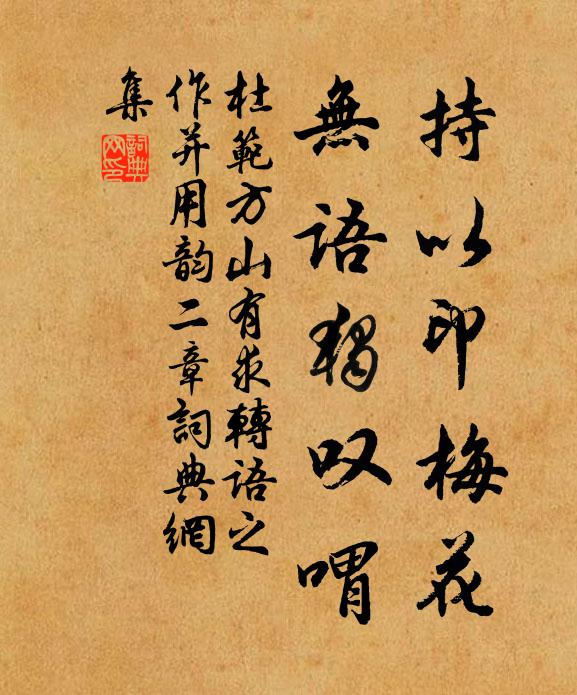 持以印梅花
無語獨叹喟
杜範方山有求轉語之
作并用韵二章詞典網
集
詞典
网印